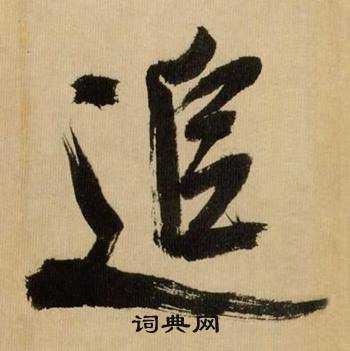 追
词典网